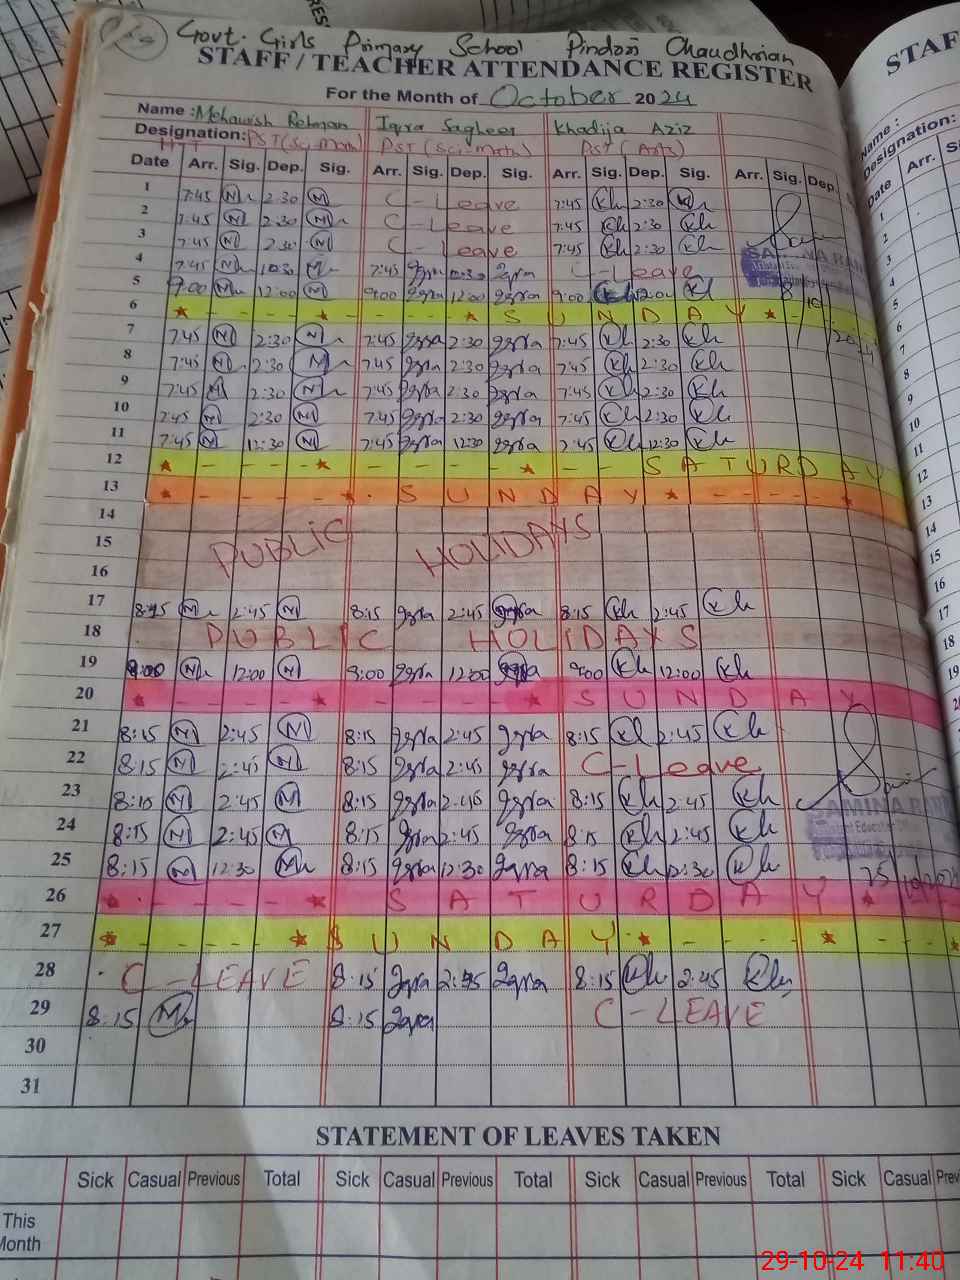 Govt. Girls Primary School Pindori Chaudhrian
STAFF / TEACHER ATTENDANCE REGISTER
STAF
For the Month of October 2024
Name : Mehawish Rehman Iqra Sagheer Khadija Aziz
Name :
Designation: PST (Sci-Math) PST (Sci-Math) PST (Arts)
HTT
Designation:
Date Arr. Sig. Dep. Sig. Arr. Sig. Dep. Sig. Arr. Sig. Dep. Sig. Arr. Sig. Dep.
Date Arr. Sig.
1 7:45 2:30 C - Leave 7:45 Kh 2:30 Kh
2 7:45 2:30 C - Leave 7:45 Kh 2:30 Kh
3 7:45 2:30 C - Leave 7:45 Kh 2:30 Kh
4 7:45 10:30 7:45 Iqra 10:30 Iqra C - Leave
5 9:00 12:00 9:00 Iqra 12:00 Iqra 9:00 Kh 12:00 Kh
6 SUNDAY
7 7:45 2:30 7:45 Iqra 2:30 Iqra 7:45 Kh 2:30 Kh
8 7:45 2:30 7:45 Iqra 2:30 Iqra 7:45 Kh 2:30 Kh
9 7:45 2:30 7:45 Iqra 2:30 Iqra 7:45 Kh 2:30 Kh
10 7:45 2:30 7:45 Iqra 2:30 Iqra 7:45 Kh 2:30 Kh
11 7:45 12:30 7:45 Iqra 12:30 Iqra 7:45 Kh 12:30 Kh
12 SATURDAY
13 SUNDAY
14
15 PUBLIC HOLIDAYS
16
17 8:15 2:45 8:15 Iqra 2:45 Iqra 8:15 Kh 2:45 Kh
18 PUBLIC HOLIDAYS
19 9:00 12:00 9:00 Iqra 12:00 Iqra 9:00 Kh 12:00 Kh
20 SUNDAY
21 8:15 2:45 8:15 Iqra 2:45 Iqra 8:15 Kh 2:45 Kh
22 8:15 2:45 8:15 Iqra 2:45 Iqra C - Leave
23 8:15 2:45 8:15 Iqra 2:45 Iqra 8:15 Kh 2:45 Kh
24 8:15 2:45 8:15 Iqra 2:45 Iqra 8:15 Kh 2:45 Kh
SAMINA RANI
25 8:15 12:30 8:15 Iqra 12:30 Iqra 8:15 Kh 12:30 Kh
25/10/2024
26 SATURDAY
27 SUNDAY
28 C - LEAVE 8:15 Iqra 2:45 Iqra 8:15 Kh 2:45 Kh
29 8:15 8:15 Iqra C - LEAVE
30
31
STATEMENT OF LEAVES TAKEN
Sick Casual Previous Total Sick Casual Previous Total Sick Casual Previous Total Sick Casual Prev
This
Month
29-10-24 11:40